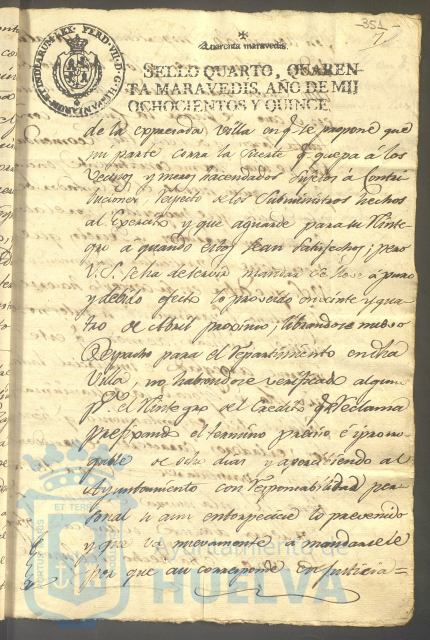 351
7
HISPANIARUM REX FERD. VII. D. G.
Quarenta maravedis.
SELLO QUARTO, QUAREN-
TA MARAVEDIS, AÑO DE MIL
OCHOCIENTOS Y QUINCE.
de la expresada Villa en q.e se propone que
mi parte corra la suerte q.e quepa á los
Vecinos y meros hacendados sujetos a contri
buciones, respecto de los Subministros hechos
al Exercito, y que aguarde para su Reinte-
gro á quando estos sean satisfechos; pero
V.S. se ha de servir mandar se lleve a puro
y debido efecto lo proveido en veinte y qua
tro de Abril proximo, librandose nuevo
Despacho para el Repartimiento en dha
Villa, no habiendose verificado alguno
p.a el Reintegro del Credito q.e Reclama
prefixando el termino preciso é ymprorro
gable de ocho dias y apercibiendo al
Ayuntamiento con responsabilidad per
sonal si aun entorpeciere lo prevenido
y que va nuevamente á mandarsele
por que asi corresponde en Justicia=
Ayuntamiento de
HUELVA